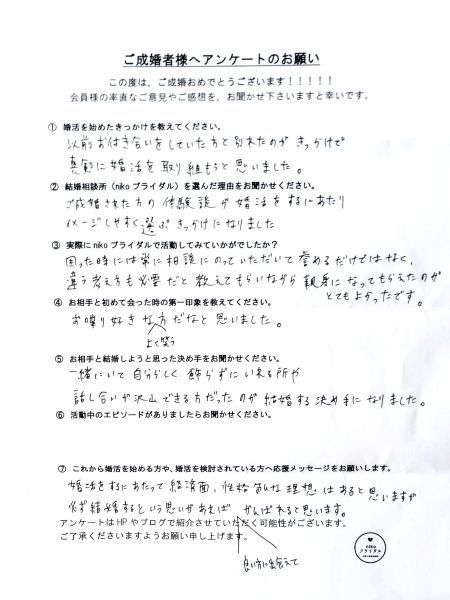 ご成婚者様へアンケートのお願い
この度は、ご成婚おめでとうございます！！！！！
会員様の率直なご意見やご感想を、お聞かせ下さいますと幸いです。
① 婚活を始めたきっかけを教えてください。
以前お付き合いをしていた方と別れたのがきっかけで
真剣に婚活を取り組もうと思いました。
② 結婚相談所（nikoブライダル）を選んだ理由をお聞かせください。
ご成婚された方の体験談が婚活をするにあたり
イメージしやすく選ぶきっかけになりました
③ 実際にnikoブライダルで活動してみていかがでしたか？
困った時には常に相談にのっていただいて誉めるだけではなく、
違う考え方も必要だと教えてもらいながら親身になってもらえたのが
とてもよかったです。
④ お相手と初めて会った時の第一印象を教えてください。
お喋り好きな方だなと思いました。
よく笑う
⑤ お相手と結婚しようと思った決め手をお聞かせください。
一緒にいて自分らしく飾らずにいれる所や
話し合いが沢山できる方だったのが結婚する決め手になりました。
⑥ 活動中のエピソードがありましたらお聞かせください。
⑦ これから婚活を始める方や、婚活を検討されている方へ応援メッセージをお願いします。
婚活をするにあたって経済面、性格色んな理想はあると思いますが
必ず結婚するという思いがあれば がんばれると思います。
良い方に出会えて
アンケートはHPやブログで紹介させていただく可能性がございます。
ご了承くださいますようお願い申し上げます。
niko
ブライダル